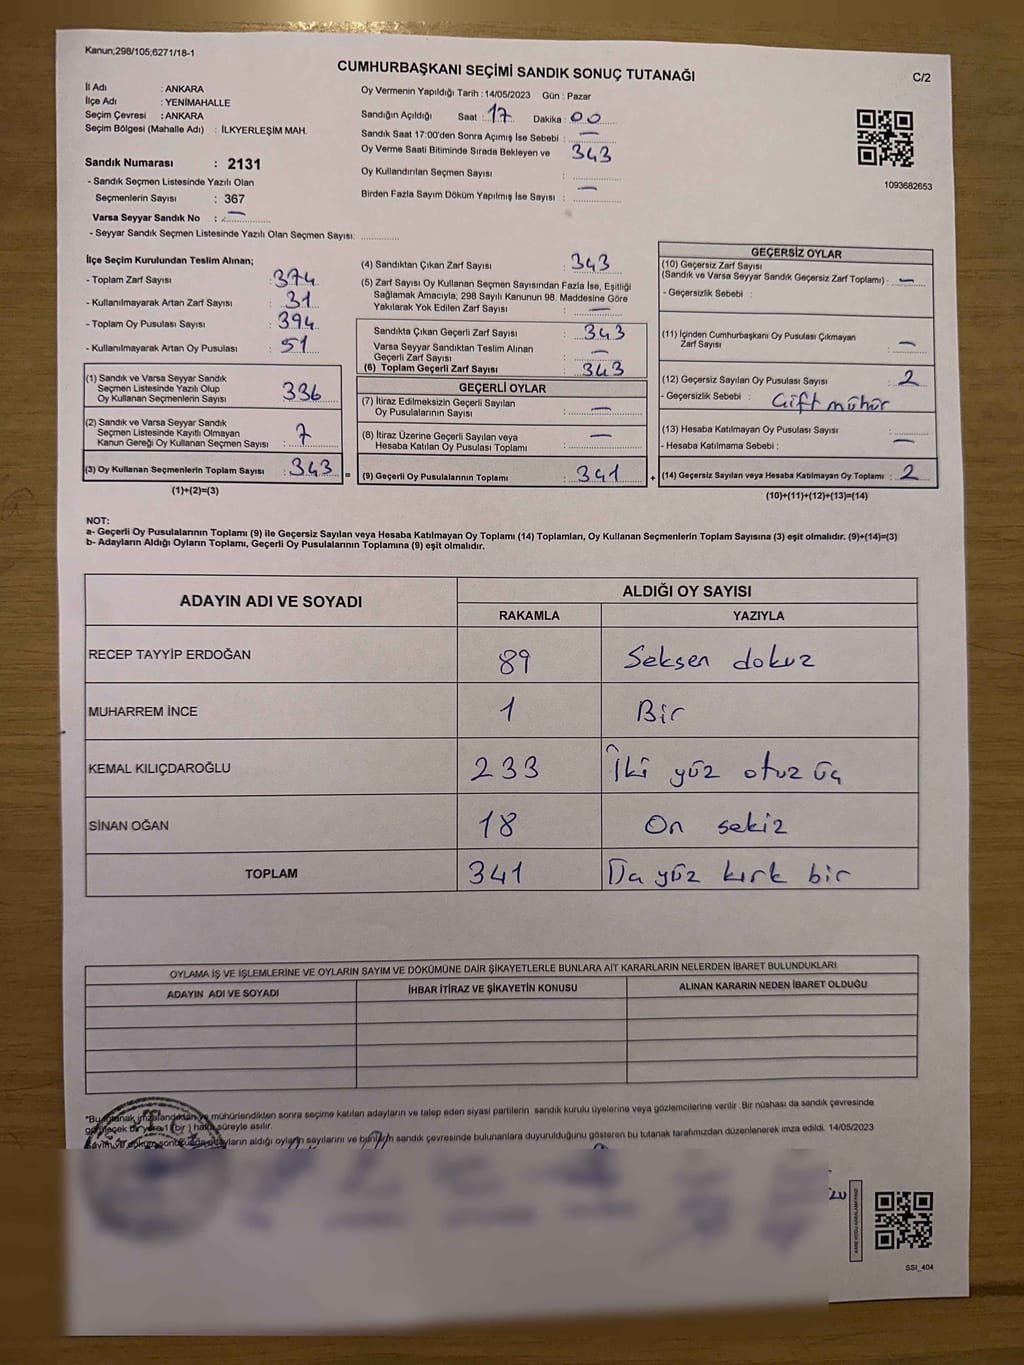 Kanun;298/105;6271/18-1
CUMHURBAŞKANI SEÇİMİ SANDIK SONUÇ TUTANAĞI
C/2
İl Adı : ANKARA
İlçe Adı : YENİMAHALLE
Seçim Çevresi : ANKARA
Seçim Bölgesi (Mahalle Adı) : İLKYERLEŞİM MAH.
Sandık Numarası : 2131
- Sandık Seçmen Listesinde Yazılı Olan
Seçmenlerin Sayısı : 367
Varsa Seyyar Sandık No : —
- Seyyar Sandık Seçmen Listesinde Yazılı Olan Seçmen Sayısı: ............
Oy Vermenin Yapıldığı Tarih : 14/05/2023 Gün : Pazar
Sandığın Açıldığı Saat : 17 Dakika : 00
Sandık Saat 17:00'den Sonra Açımış İse Sebebi : —
Oy Verme Saati Bitiminde Sırada Bekleyen ve 343
Oy Kullandırılan Seçmen Sayısı : ............
Birden Fazla Sayım Döküm Yapılmış İse Sayısı : —
1093682653
İlçe Seçim Kurulundan Teslim Alınan;
- Toplam Zarf Sayısı : 374
- Kullanılmayarak Artan Zarf Sayısı : 31
- Toplam Oy Pusulası Sayısı : 394
- Kullanılmayarak Artan Oy Pusulası : 51
(1) Sandık ve Varsa Seyyar Sandık
Seçmen Listesinde Yazılı Olup
Oy Kullanan Seçmenlerin Sayısı : 336
(2) Sandık ve Varsa Seyyar Sandık
Seçmen Listesinde Kayıtlı Olmayan
Kanun Gereği Oy Kullanan Seçmen Sayısı : 7
(3) Oy Kullanan Seçmenlerin Toplam Sayısı : 343 =
(1)+(2)=(3)
(4) Sandıktan Çıkan Zarf Sayısı : 343
(5) Zarf Sayısı Oy Kullanan Seçmen Sayısından Fazla İse, Eşitliği
Sağlamak Amacıyla; 298 Sayılı Kanunun 98. Maddesine Göre
Yakılarak Yok Edilen Zarf Sayısı : —
Sandıkta Çıkan Geçerli Zarf Sayısı : 343
Varsa Seyyar Sandıktan Teslim Alınan
Geçerli Zarf Sayısı : —
(6) Toplam Geçerli Zarf Sayısı : 343
GEÇERLİ OYLAR
(7) İtiraz Edilmeksizin Geçerli Sayılan
Oy Pusulalarının Sayısı : —
(8) İtiraz Üzerine Geçerli Sayılan veya
Hesaba Katılan Oy Pusulası Toplamı : —
(9) Geçerli Oy Pusulalarının Toplamı : 341 +
GEÇERSİZ OYLAR
(10) Geçersiz Zarf Sayısı
(Sandık ve Varsa Seyyar Sandık Geçersiz Zarf Toplamı) : —
- Geçersizlik Sebebi :
(11) İçinden Cumhurbaşkanı Oy Pusulası Çıkmayan
Zarf Sayısı : —
(12) Geçersiz Sayılan Oy Pusulası Sayısı : 2
- Geçersizlik Sebebi : Çift mühür
(13) Hesaba Katılmayan Oy Pusulası Sayısı : —
- Hesaba Katılmama Sebebi :
(14) Geçersiz Sayılan veya Hesaba Katılmayan Oy Toplamı : 2
(10)+(11)+(12)+(13)=(14)
NOT:
a- Geçerli Oy Pusulalarının Toplamı (9) ile Geçersiz Sayılan veya Hesaba Katılmayan Oy Toplamı (14) Toplamları, Oy Kullanan Seçmenlerin Toplam Sayısına (3) eşit olmalıdır. (9)+(14)=(3)
b- Adayların Aldığı Oyların Toplamı, Geçerli Oy Pusulalarının Toplamına (9) eşit olmalıdır.
ADAYIN ADI VE SOYADI
ALDIĞI OY SAYISI
RAKAMLA YAZIYLA
RECEP TAYYİP ERDOĞAN 89 Seksen dokuz
MUHARREM İNCE 1 Bir
KEMAL KILIÇDAROĞLU 233 İki yüz otuz üç
SİNAN OĞAN 18 On sekiz
TOPLAM 341 Üç yüz kırk bir
OYLAMA İŞ VE İŞLEMLERİNE VE OYLARIN SAYIM VE DÖKÜMÜNE DAİR ŞİKAYETLERLE BUNLARA AİT KARARLARIN NELERDEN İBARET BULUNDUKLARI
ADAYIN ADI VE SOYADI İHBAR İTİRAZ VE ŞİKAYETİN KONUSU ALINAN KARARIN NEDEN İBARET OLDUĞU
mühürlendikten sonra seçime katılan adayların ve talep eden siyasi partilerin sandık kurulu üyelerine veya gözlemcilerine verilir. Bir nüshası da sandık çevresinde
(bir) hafta süreyle asılır.
adayların aldığı oyların sayılarını ve bunların sandık çevresinde bulunanlara duyurulduğunu gösteren bu tutanak tarafımızdan düzenlenerek imza edildi. 14/05/2023
SSI_404